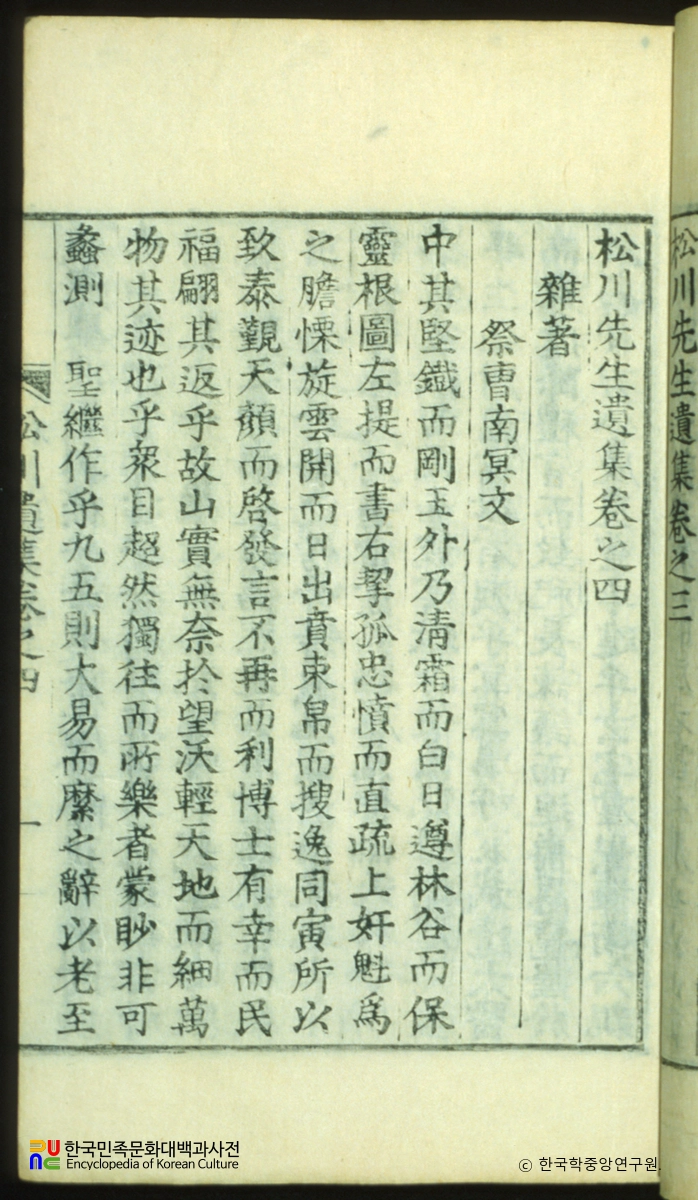 松川先生遺集卷之三
松川先生遺集卷之四
雜著
祭曺南冥文
中其堅鐵而剛玉外乃淸霜而白日遵林谷而保
靈根圖左提而書右挈孤忠憤而直疏上奸魁爲
之膽慄旋雲開而日出賁束帛而搜逸同寅所以
致泰覲天顔而啓發言不再而利博士有幸而民
福翩其返乎故山實無奈於望沃輕天地而細萬
物其迹也乎衆目超然獨往而所樂者蒙眇非可
蠡測 聖繼作乎九五則大易而縻之辭以老至
松川遺集卷之四
一
한국민족문화대백과사전
Encyclopedia of Korean Culture
ⓒ 한국학중앙연구원